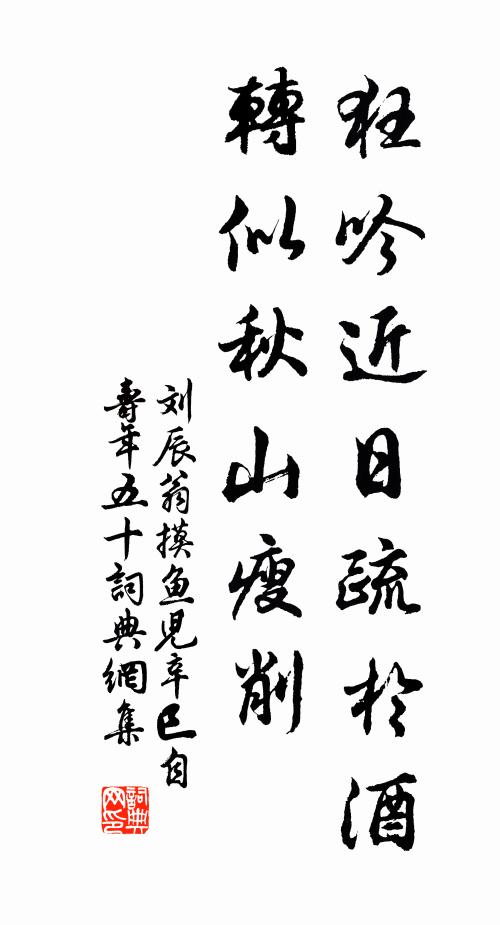 狂吟近日疏於酒
轉似秋山瘦削
刘辰翁摸鱼児辛巳自
壽年五十詞典網集
詞典网印